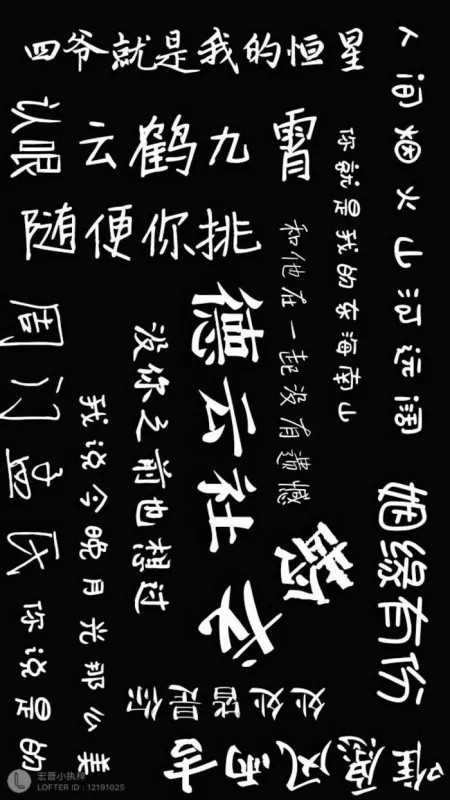 四爷就是我的恒星
人间烟火山河远阔
认
云鹤九霄
你就是我的东海南山
随便你挑
和他在一起没有遗憾
德云社
没你之前也想过
周门孟氏
我说今晚月光那么美
姻缘有份
龄龙
你说是的
处处皆是你
唯愿风雨吉
宏晋小执梓
LOFTER ID : 12191025